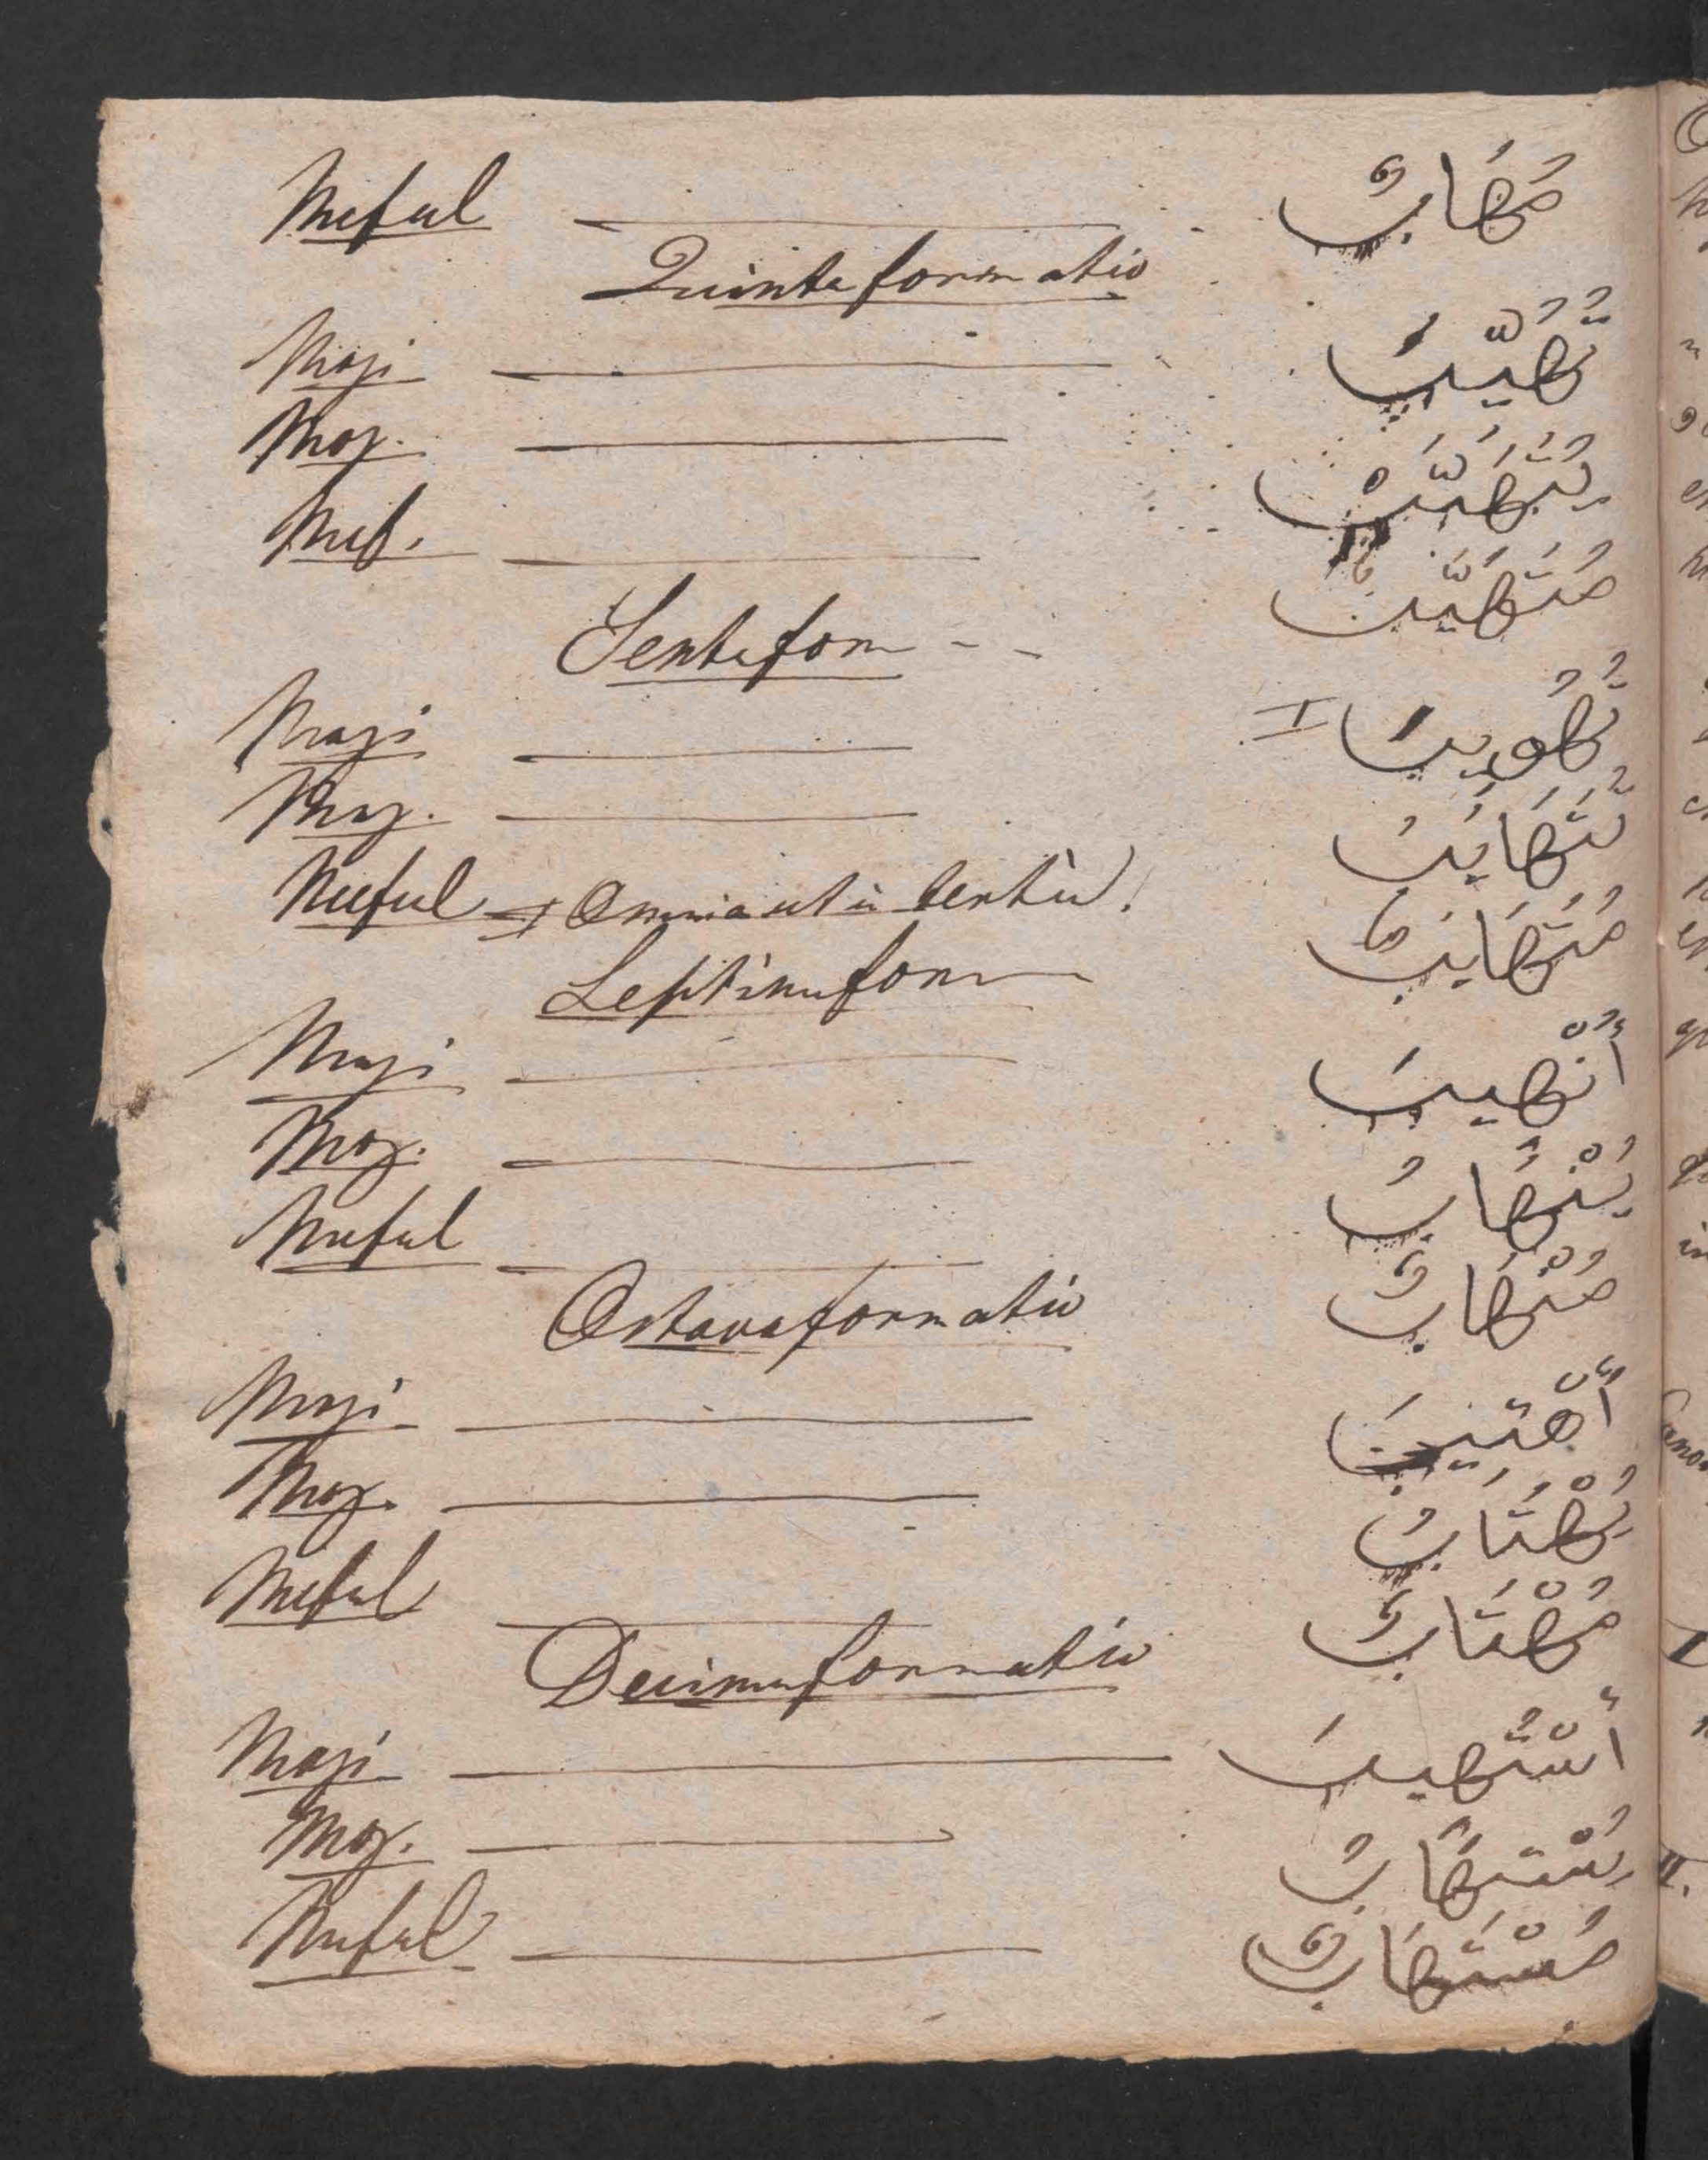 Meful — مُهَابٌ
Quinta formatio
Mazi — تُهُيِّبَ
Moz. — يُتَهَيَّبُ
Mef. — مُتَهَيَّبٌ
Sexta form - -
Mazi — تُهُويِبَ I
Moz. — يُتَهَايَبُ
Meful I Omnia ut in tertia! مُتَهَايَبٌ
Septima form
Mazi — أُنْهِيبَ
Moz. — يُنْهَابُ
Meful — مُنْهَابٌ
Octava formatio
Mazi — أُهْتِيبَ
Moz. — يُهْتَابُ
Meful — مُهْتَابٌ
Decima formatio
Mazi — أُسْتُهِيبَ
Moz. — يُسْتَهَابُ
Meful — مُسْتَهَابٌ